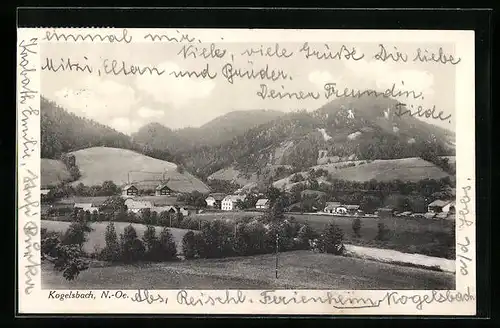 emmal mir. Viele, viele Grüße Dir liebe
Mitzi, Eltern und Brüder.
Deiner Freundin
Tilde.
Kogelsbach, N.-Oe.
abs, Reischl. Ferienheim Kogelsbach
a/d Ybbs.